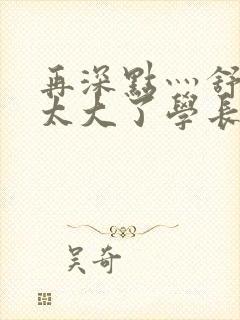 再深點灬舒
太大了學長
吴奇